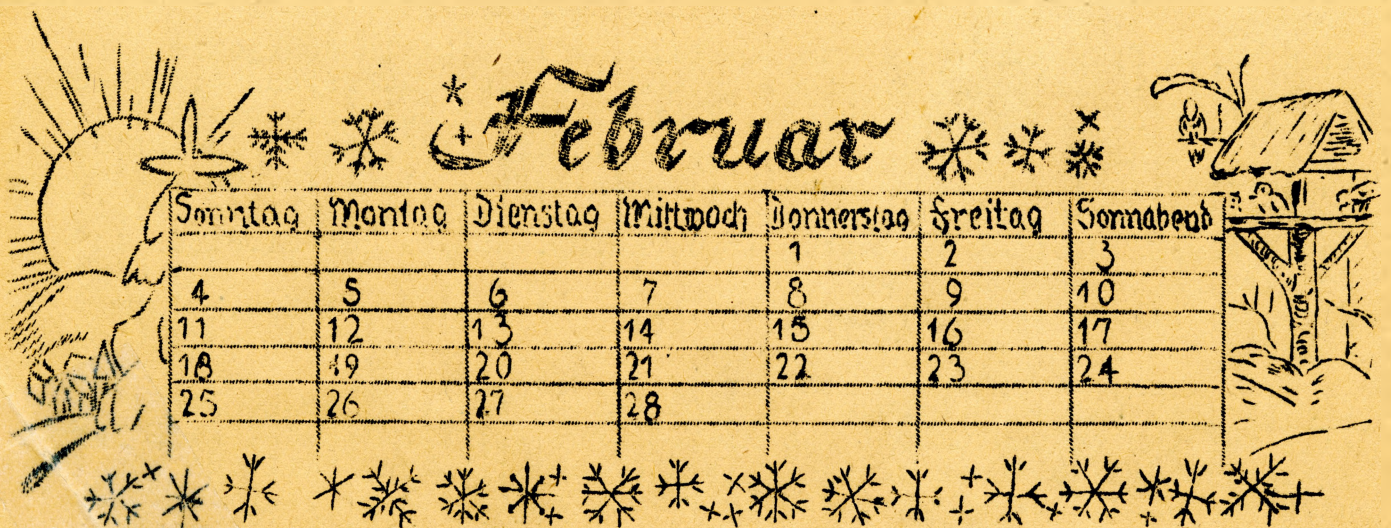 Februar
Sonntag Montag Dienstag Mittwoch Donnerstag Freitag Sonnabend
1 2 3
4 5 6 7 8 9 10
11 12 13 14 15 16 17
18 19 20 21 22 23 24
25 26 27 28